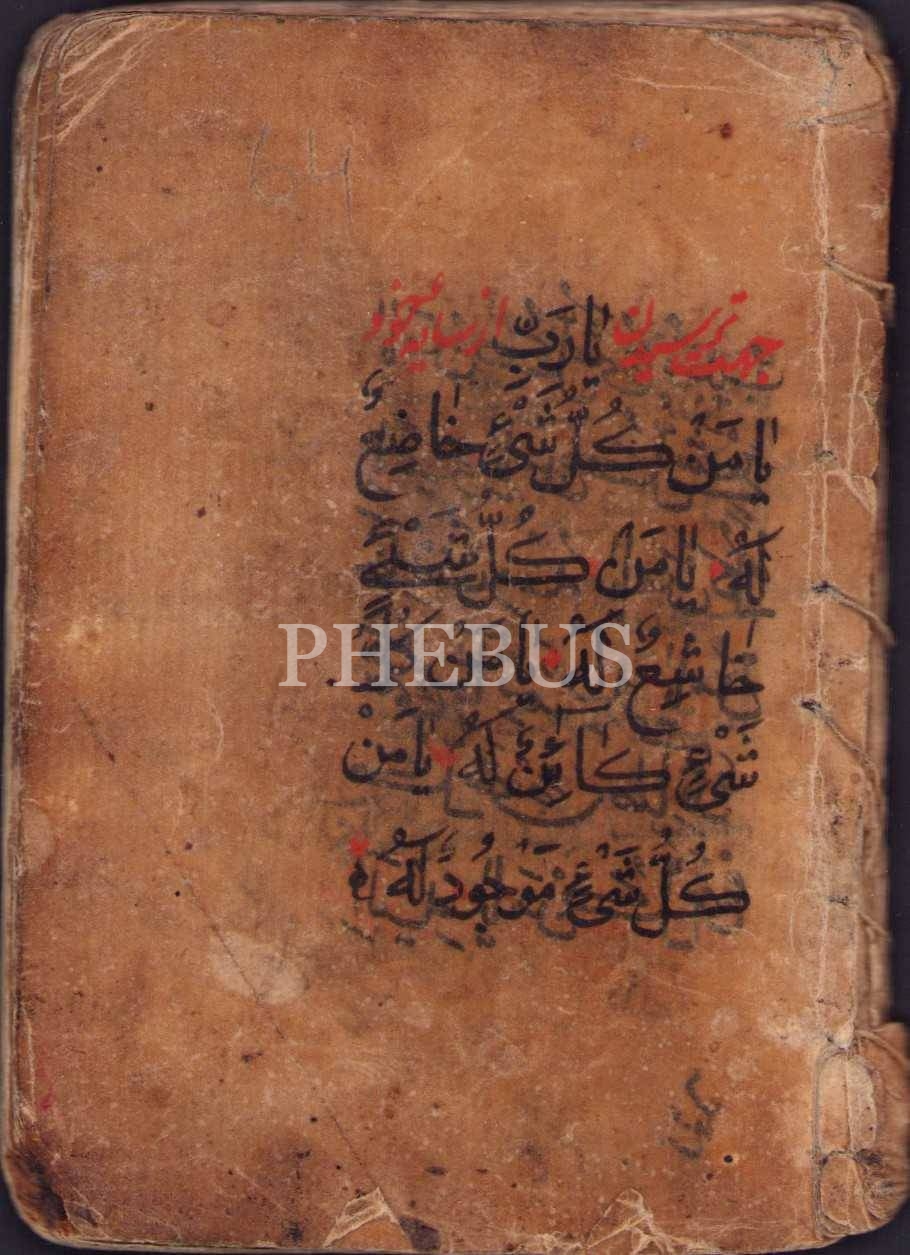 64
جهت ترسیدن یٰا رَبِّ از سایه خود
یٰا مَنْ كُلُّ شَیْءٍ خٰاضِعٌ
لَهُ یٰا مَنْ كُلُّ شَیْءٍ
خٰاشِعٌ لَهُ یٰا مَنْ كُلُّ
شَیْءٍ كٰائِنٌ لَهُ یٰا مَنْ
كُلُّ شَیْءٍ مَوْجُودٌ لَهُ
PHEBUS